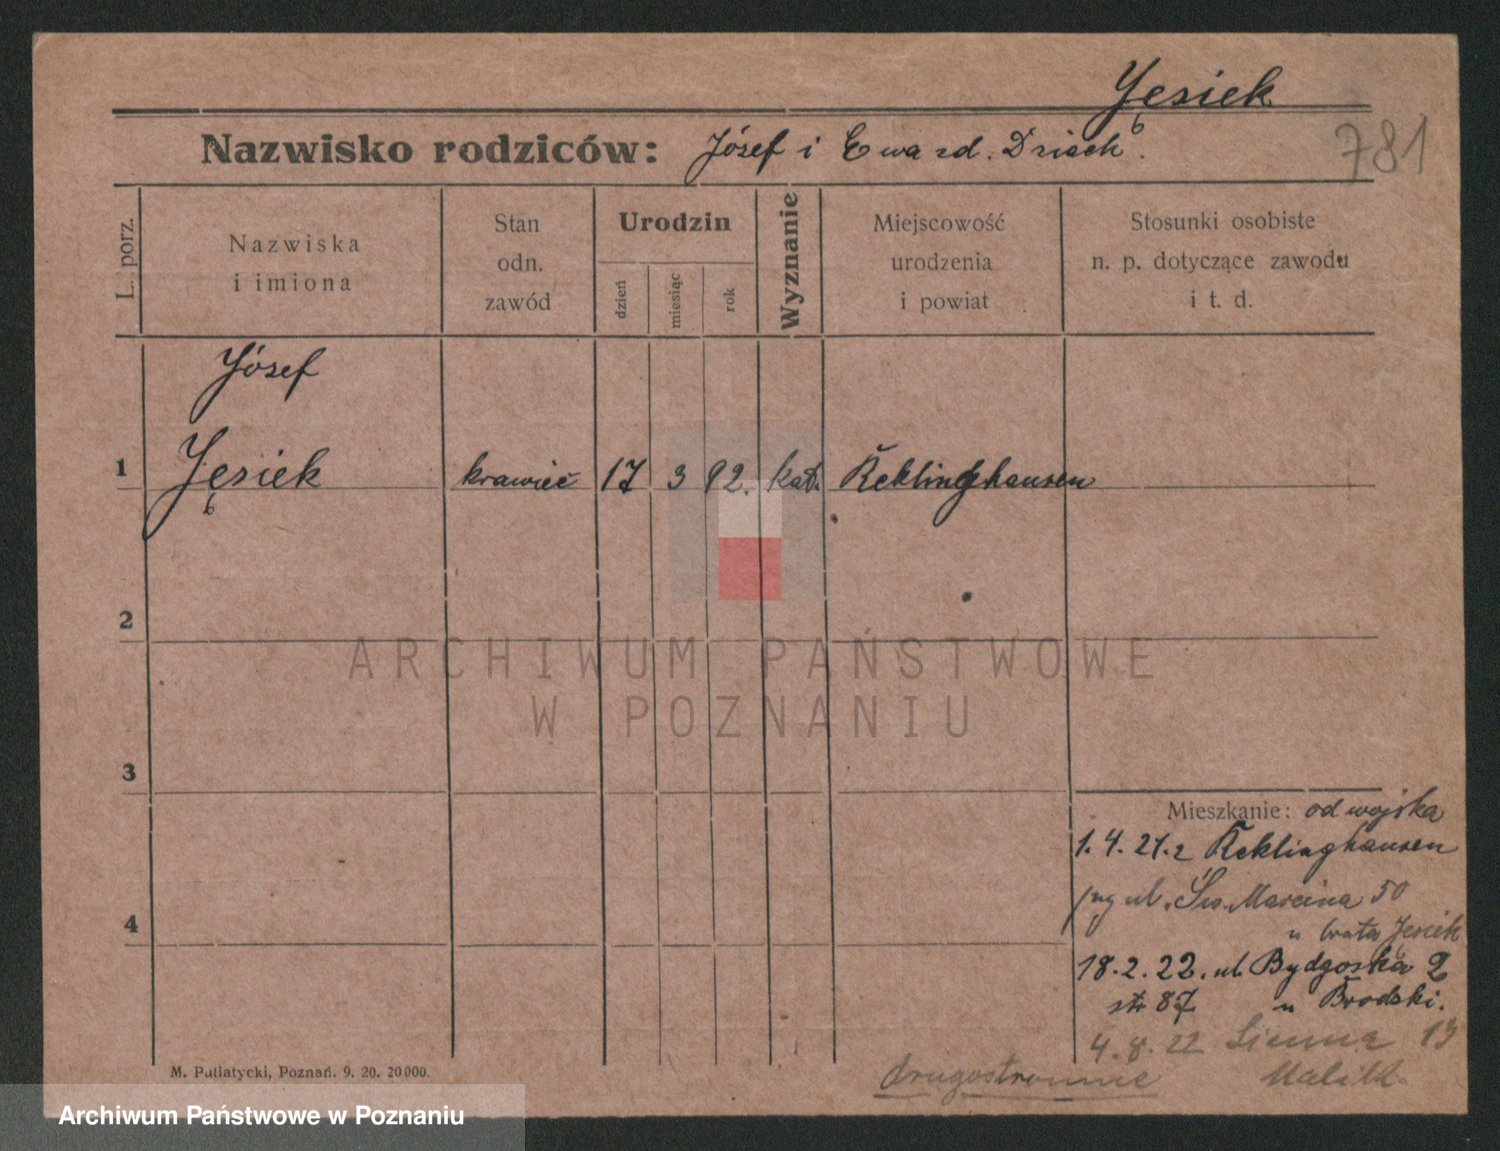 Jęsiek
781
Nazwisko rodziców: Józef i Ewa zd. Dziach.
L. porz.
Nazwiska
i imiona
Stan
odn.
zawód
Urodzin
dzień
miesiąc
rok
Wyznanie
Miejscowość
urodzenia
i powiat
Stosunki osobiste
n. p. dotyczące zawodu
i t. d.
Józef
1 Jęsiek krawiec 17 3 92. kat. Reklinghausen
2
ARCHIWUM PAŃSTWOWE
W POZNANIU
3
Mieszkanie: od wojska
1. 4. 21. z Reklinghausen
ul. Św. Marcina 50
u brata Jęsiek
4
18. 2. 22. ul. Bydgoska 2
str 87 u Brodski.
4. 8. 22 Sienna 13
M. Putiatycki, Poznań. 9. 20. 20000.
drugostronnie
Archiwum Państwowe w Poznaniu